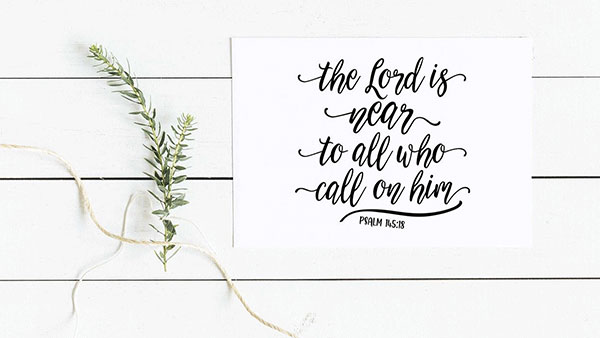 the Lord is
near
to all who
call on him
PSALM 145:18